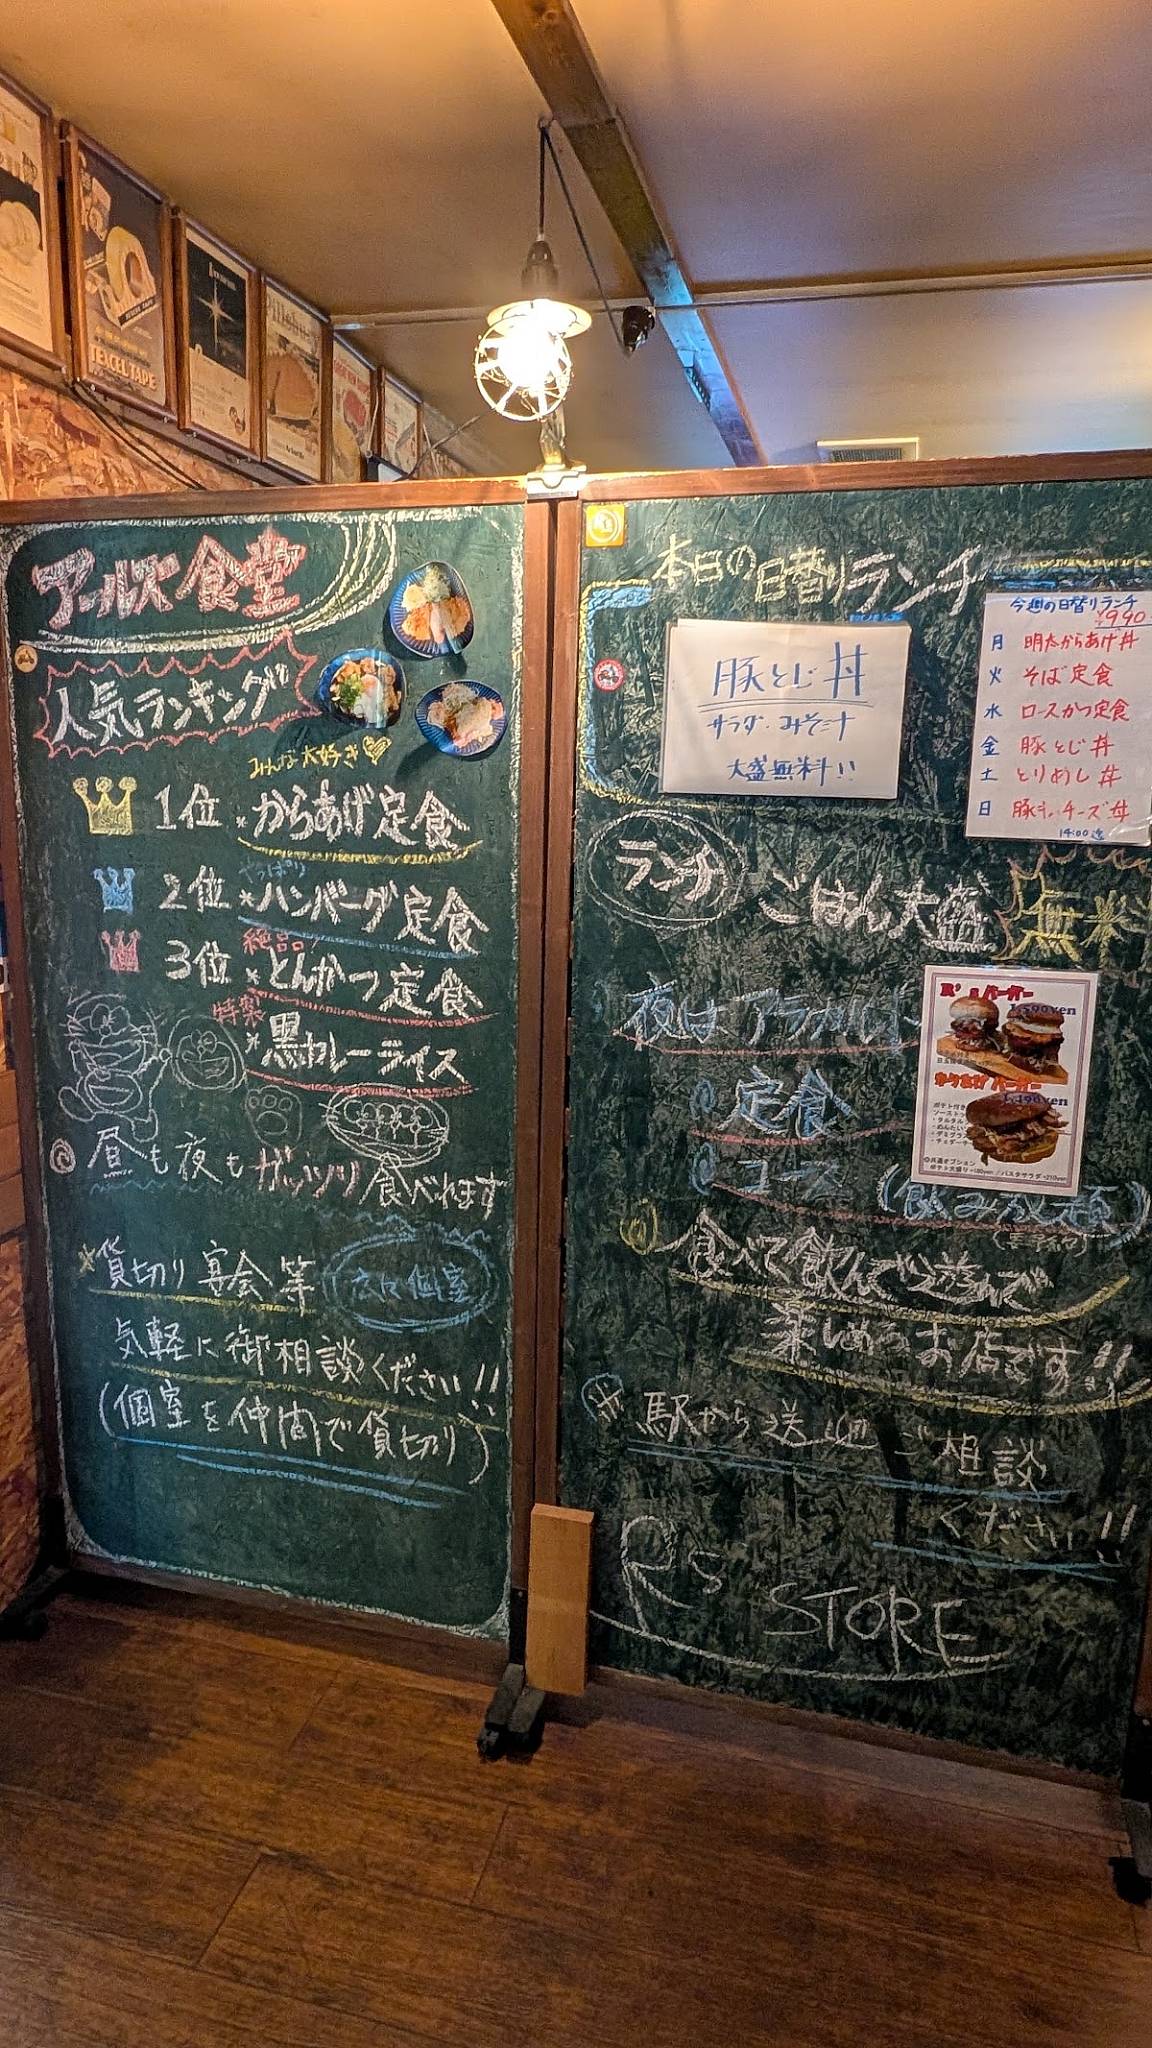 TEXCEL TAPE
アールズ食堂
人気ランキング!!
みんな大好き
1位 *からあげ定食
やっぱり
2位 *ハンバーグ定食
絶品
3位 *とんかつ定食
特製
*黒カレーライス
昼も夜もガッツリ食べれます
貸切り宴会等
広々個室
気軽に御相談ください!!
(個室を仲間で貸切り)
R's
本日の日替りランチ
豚とじ丼
サラダ・みそ汁
大盛無料!!
今週の日替りランチ
¥990
月 明太からあげ丼
火 そば定食
水 ロースかつ定食
金 豚とじ丼
土 とりめし丼
日 豚キムチーズ丼
14:00迄
ランチ
ごはん大盛
無料
夜はアラカルト
R'sバーガー
1,390yen
からあげバーガー
1,190yen
ポテト付き
◎共通オプション
ポテト大盛り+180yen / パスタサラダ+210yen
定食
コース
(飲み放題)
食べて飲んで遊んで
楽しめるお店です!!
駅から送迎ご相談
ください!!
R's STORE